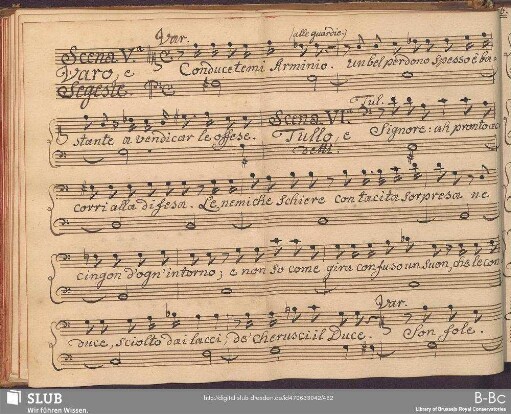 Var. (alle guardie.)
Scena V.ª
Varo, e
Segeste.
Conducetemi Arminio. Un bel perdono spesso è ba-
stante a vendicar le offese.
Scena VI.ª
Tullo, e
detti
Tul.
Signore: ah pronto ac
corri alla difesa. Le nemiche schiere con tacita sorpresa ne
cingon d'ogn'intorno; e non so come gira confuso un suon, che le con
duce, sciolto dai lacci, de' Cherusci il Duce.
Var.
Son fole.
SLUB
Wir führen Wissen.
B-Bc
Library of Brussels Royal Conservatories